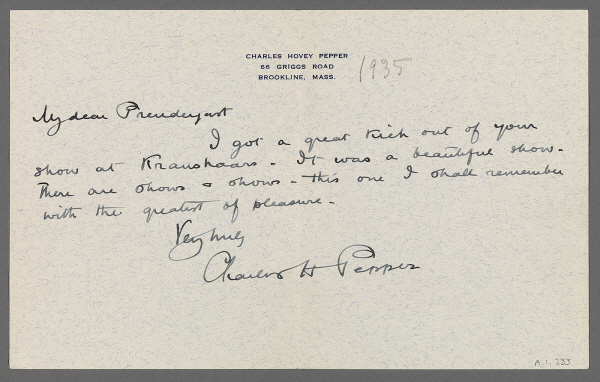 CHARLES HOVEY PEPPER
66 GRIGGS ROAD
BROOKLINE, MASS.
1935
My dear Prendergast
I got a great kick out of your
show at Kraushaars - It was a beautiful show.
There are shows & shows - this one I shall remember
with the greatest of pleasure -
Very truly
Charles H Pepper
A.1.233